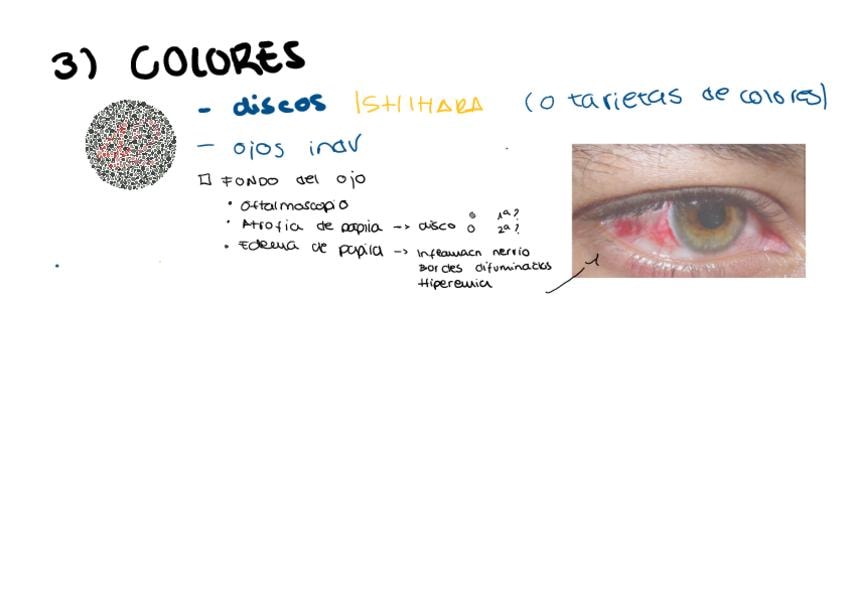 3) COLORES
- discos ISHIHARA (o tarjetas de colores)
- ojos indv
FONDO del ojo
• Oftalmoscopio
• Atrofia de papila -> disco 0 1ª?
0 2ª?
• Edema de papila -> Inflamacn nervio
Bordes difuminados
Hiperemia